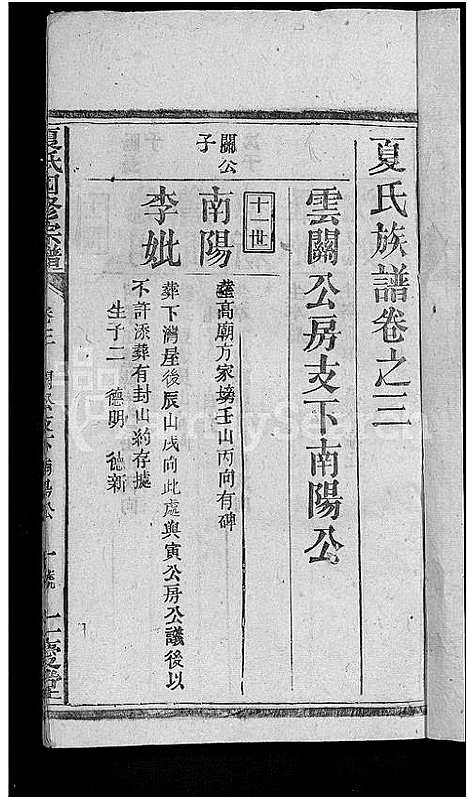 夏氏族譜卷之三
雲關公房支下南陽公
十一世
關公子
南陽
葬高廟方家塝壬山丙向有碑
李妣
葬下灣屋後辰山戌向此處與寅公房公議後以
不許添葬有封山約存據
生子二 德明 德新
夏氏四修宗譜
卷三 關公支下南陽公 一號